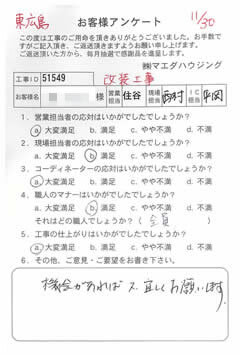 東広島
お客様アンケート
11/30
この度は工事のご用命を頂きありがとうございました。お手数で
すがご記入頂き、ご返送頂きますようお願い申し上げます。
ご返送いただいた方から、毎月抽選で感謝品を進呈します。
㈱マエダハウジング
工事ID 51549 改装工事
お客様名 様 営業担当 住谷 現場担当 西村 IC担当 平岡
1. 営業担当者の応対はいかがでしたでしょうか?
a. 大変満足 b. 満足 c. やや不満 d. 不満
2. 現場担当者の応対はいかがでしたでしょうか?
a. 大変満足 b. 満足 c. やや不満 d. 不満
3. コーディネーターの応対はいかがでしたでしょうか?
a. 大変満足 b. 満足 c. やや不満 d. 不満
4. 職人のマナーはいかがでしたでしょうか?
a. 大変満足 b. 満足 c. やや不満 d. 不満
それはどの職人でしょうか? ( 全員 )
5. 工事の仕上がりはいかがでしたでしょうか?
a. 大変満足 b. 満足 c. やや不満 d. 不満
6. その他、ご意見・ご要望をお書き下さい。
機会があれば又、宜しくお願います。